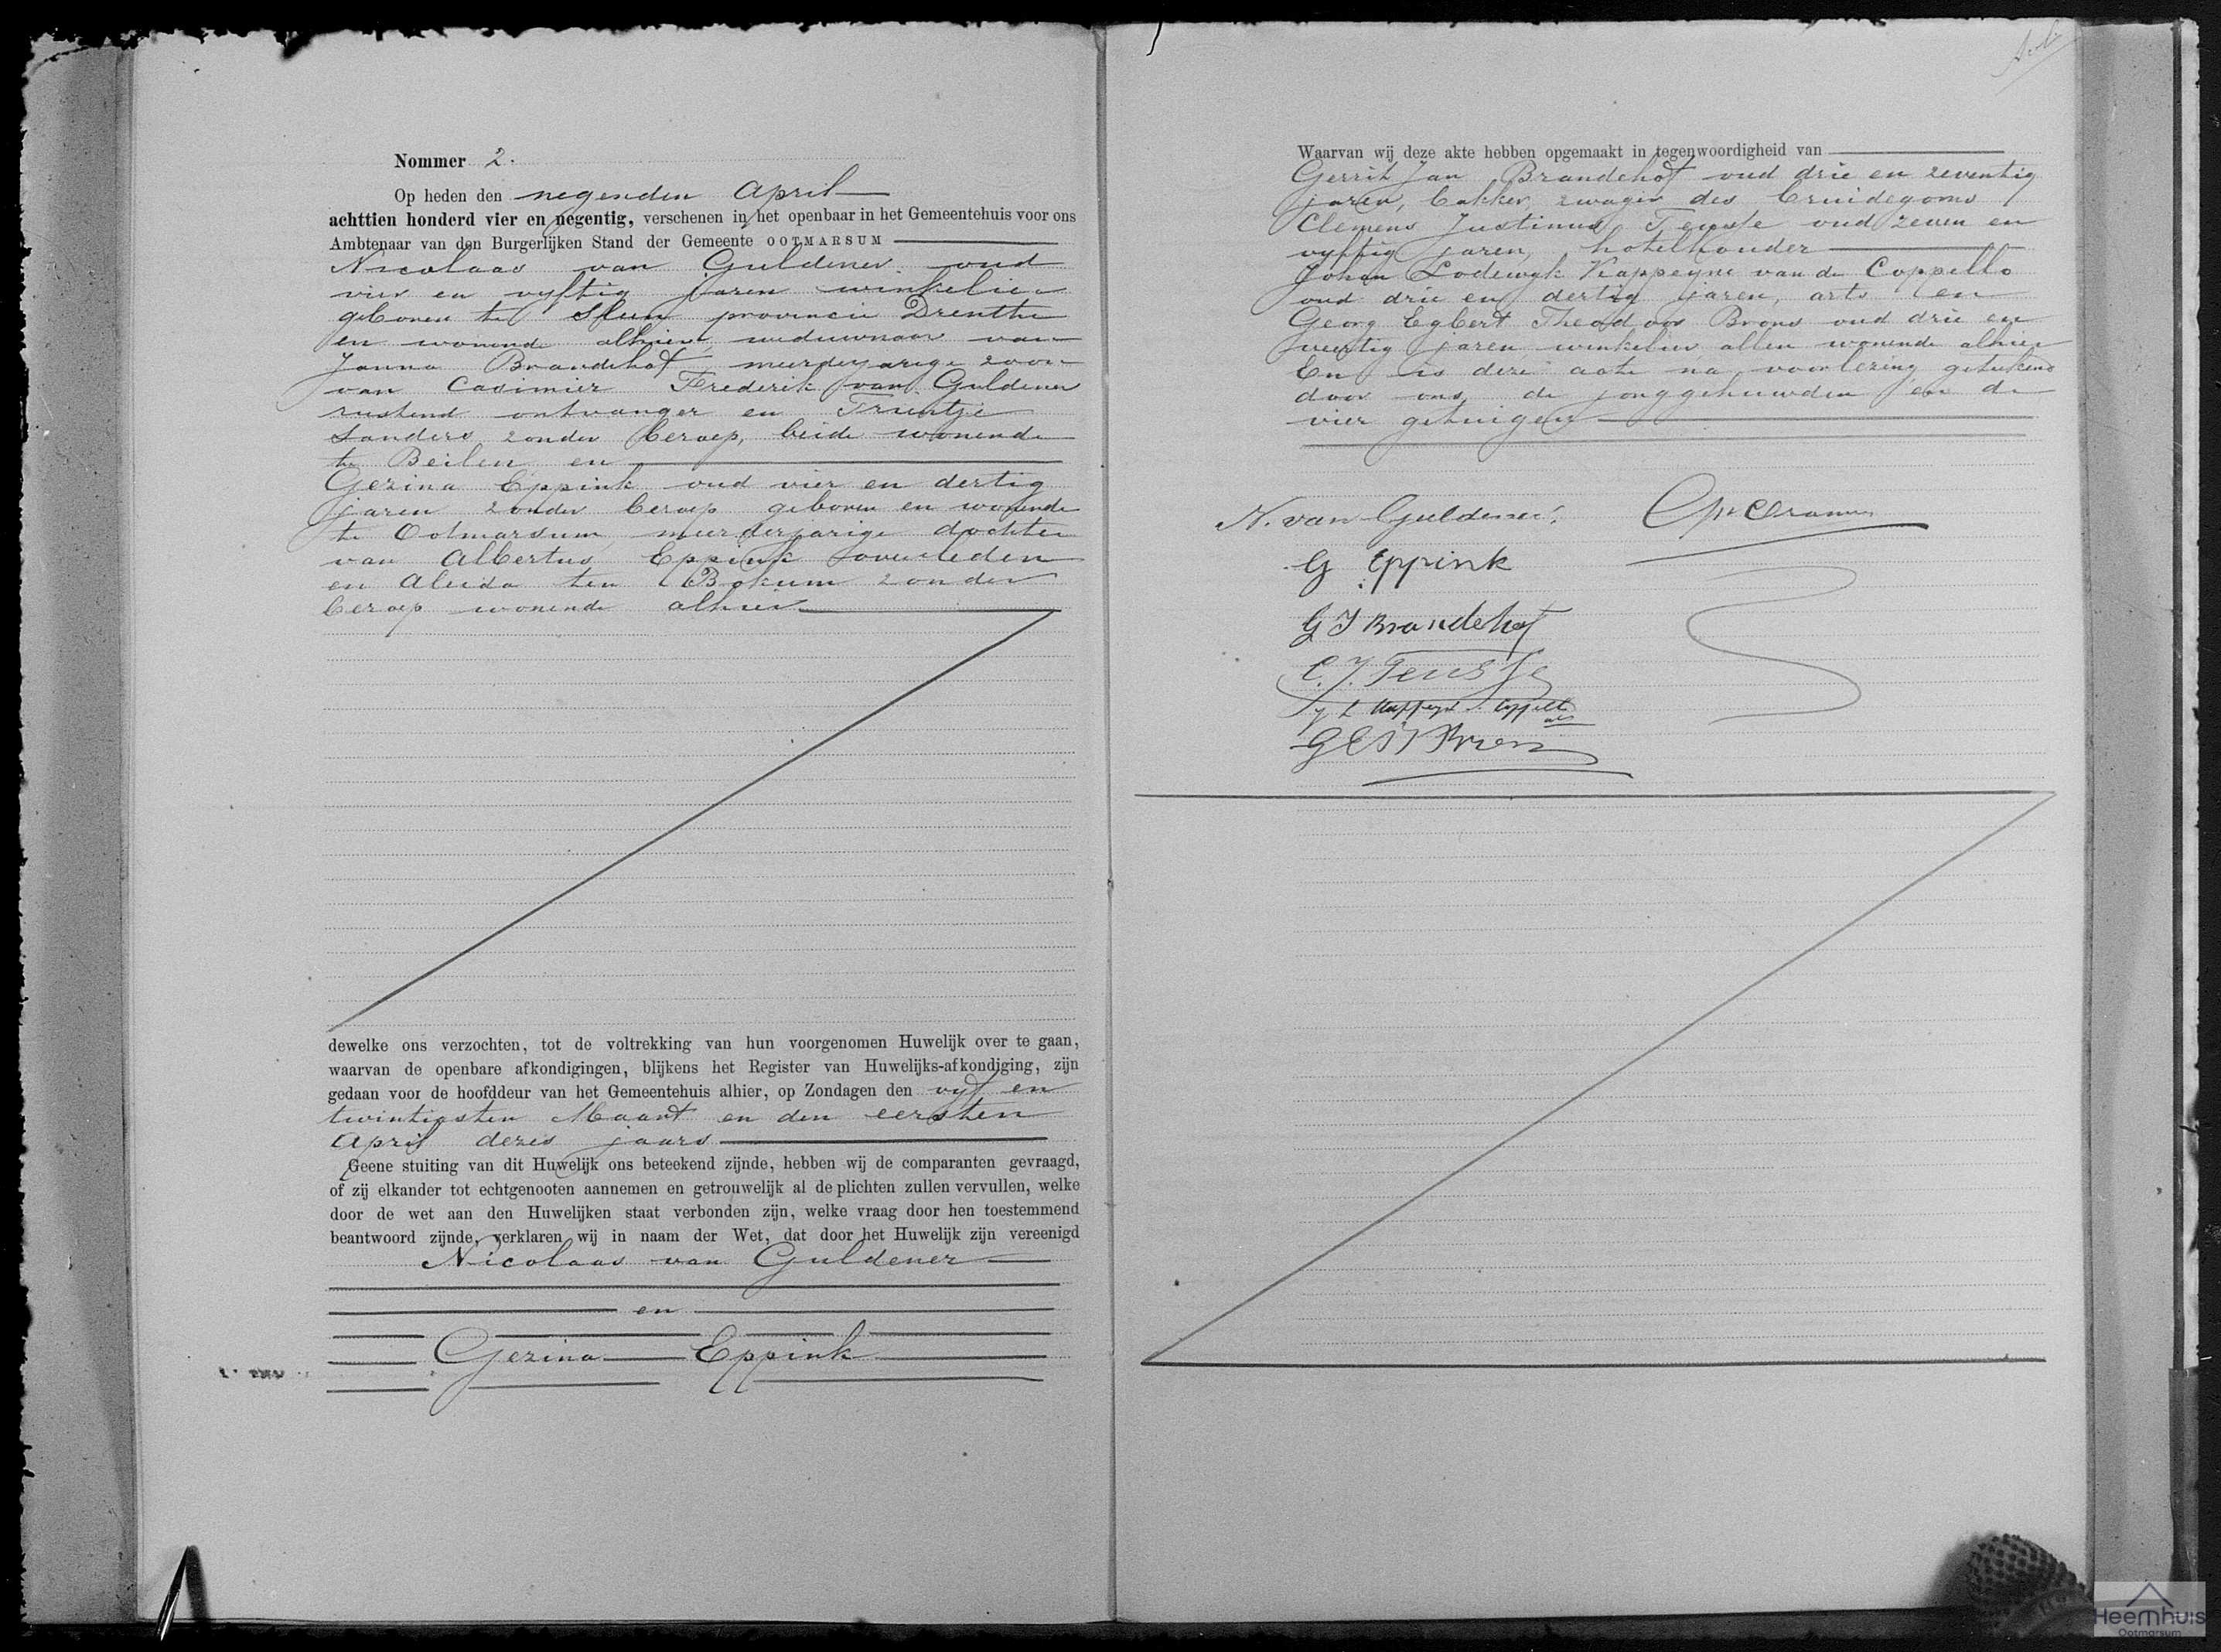 Nommer 2.
Op heden den negenden April
achttien honderd vier en negentig, verschenen in het openbaar in het Gemeentehuis voor ons
Ambtenaar van den Burgerlijken Stand der Gemeente OOTMARSUM
Nicolaas van Guldener oud
vier en vyftig jaren winkelier
geboren te Sleen provincie Drenthe
en wonende alhier, weduwnaar van
Janna Brandehof meerderjarige zoon
van Casimier Frederik van Guldener
rustend ontvanger en Trientje
Sanders zonder beroep, beide wonende
te Beilen en
Gezina Eppink oud vier en dertig
jaren zonder beroep geboren en wonende
te Ootmarsum meerderjarige dochter
van Albertus Eppink overleden
en Aleida ten Bokum zonder
beroep wonende alhier
dewelke ons verzochten, tot de voltrekking van hun voorgenomen Huwelijk over te gaan,
waarvan de openbare afkondigingen, blijkens het Register van Huwelijks-afkondiging, zijn
gedaan voor de hoofddeur van het Gemeentehuis alhier, op Zondagen den vyf en
twintigsten Maart en den eersten
April dezes jaars
Geene stuiting van dit Huwelijk ons beteekend zijnde, hebben wij de comparanten gevraagd,
of zij elkander tot echtgenooten aannemen en getrouwelijk al de plichten zullen vervullen, welke
door de wet aan den Huwelijken staat verbonden zijn, welke vraag door hen toestemmend
beantwoord zijnde, verklaren wij in naam der Wet, dat door het Huwelijk zijn vereenigd
Nicolaas van Guldener
en
Gezina Eppink
Waarvan wij deze akte hebben opgemaakt in tegenwoordigheid van
Gerrit Jan Brandehof oud drie en zeventig
jaren, bakker, zwager des bruidegoms
Clemens Justinus Teusse oud zeven en
vyftig jaren, hotelhouder
Johan Lodewyk Kappeyne van de Coppello
oud drie en dertig jaren, arts en
Georg Egbert Theodoor Brons oud drie en
veertig jaren winkelier allen wonende alhier
En is deze acte na voorlezing geteekend
door ons, de jonggehuwden en de
vier getuigen
N. van Guldener.
G Eppink
G J Brandehof
C. J. Teusse
J L Kappeyne Coppello
arts
G E T Brons
Heemhuis
Ootmarsum